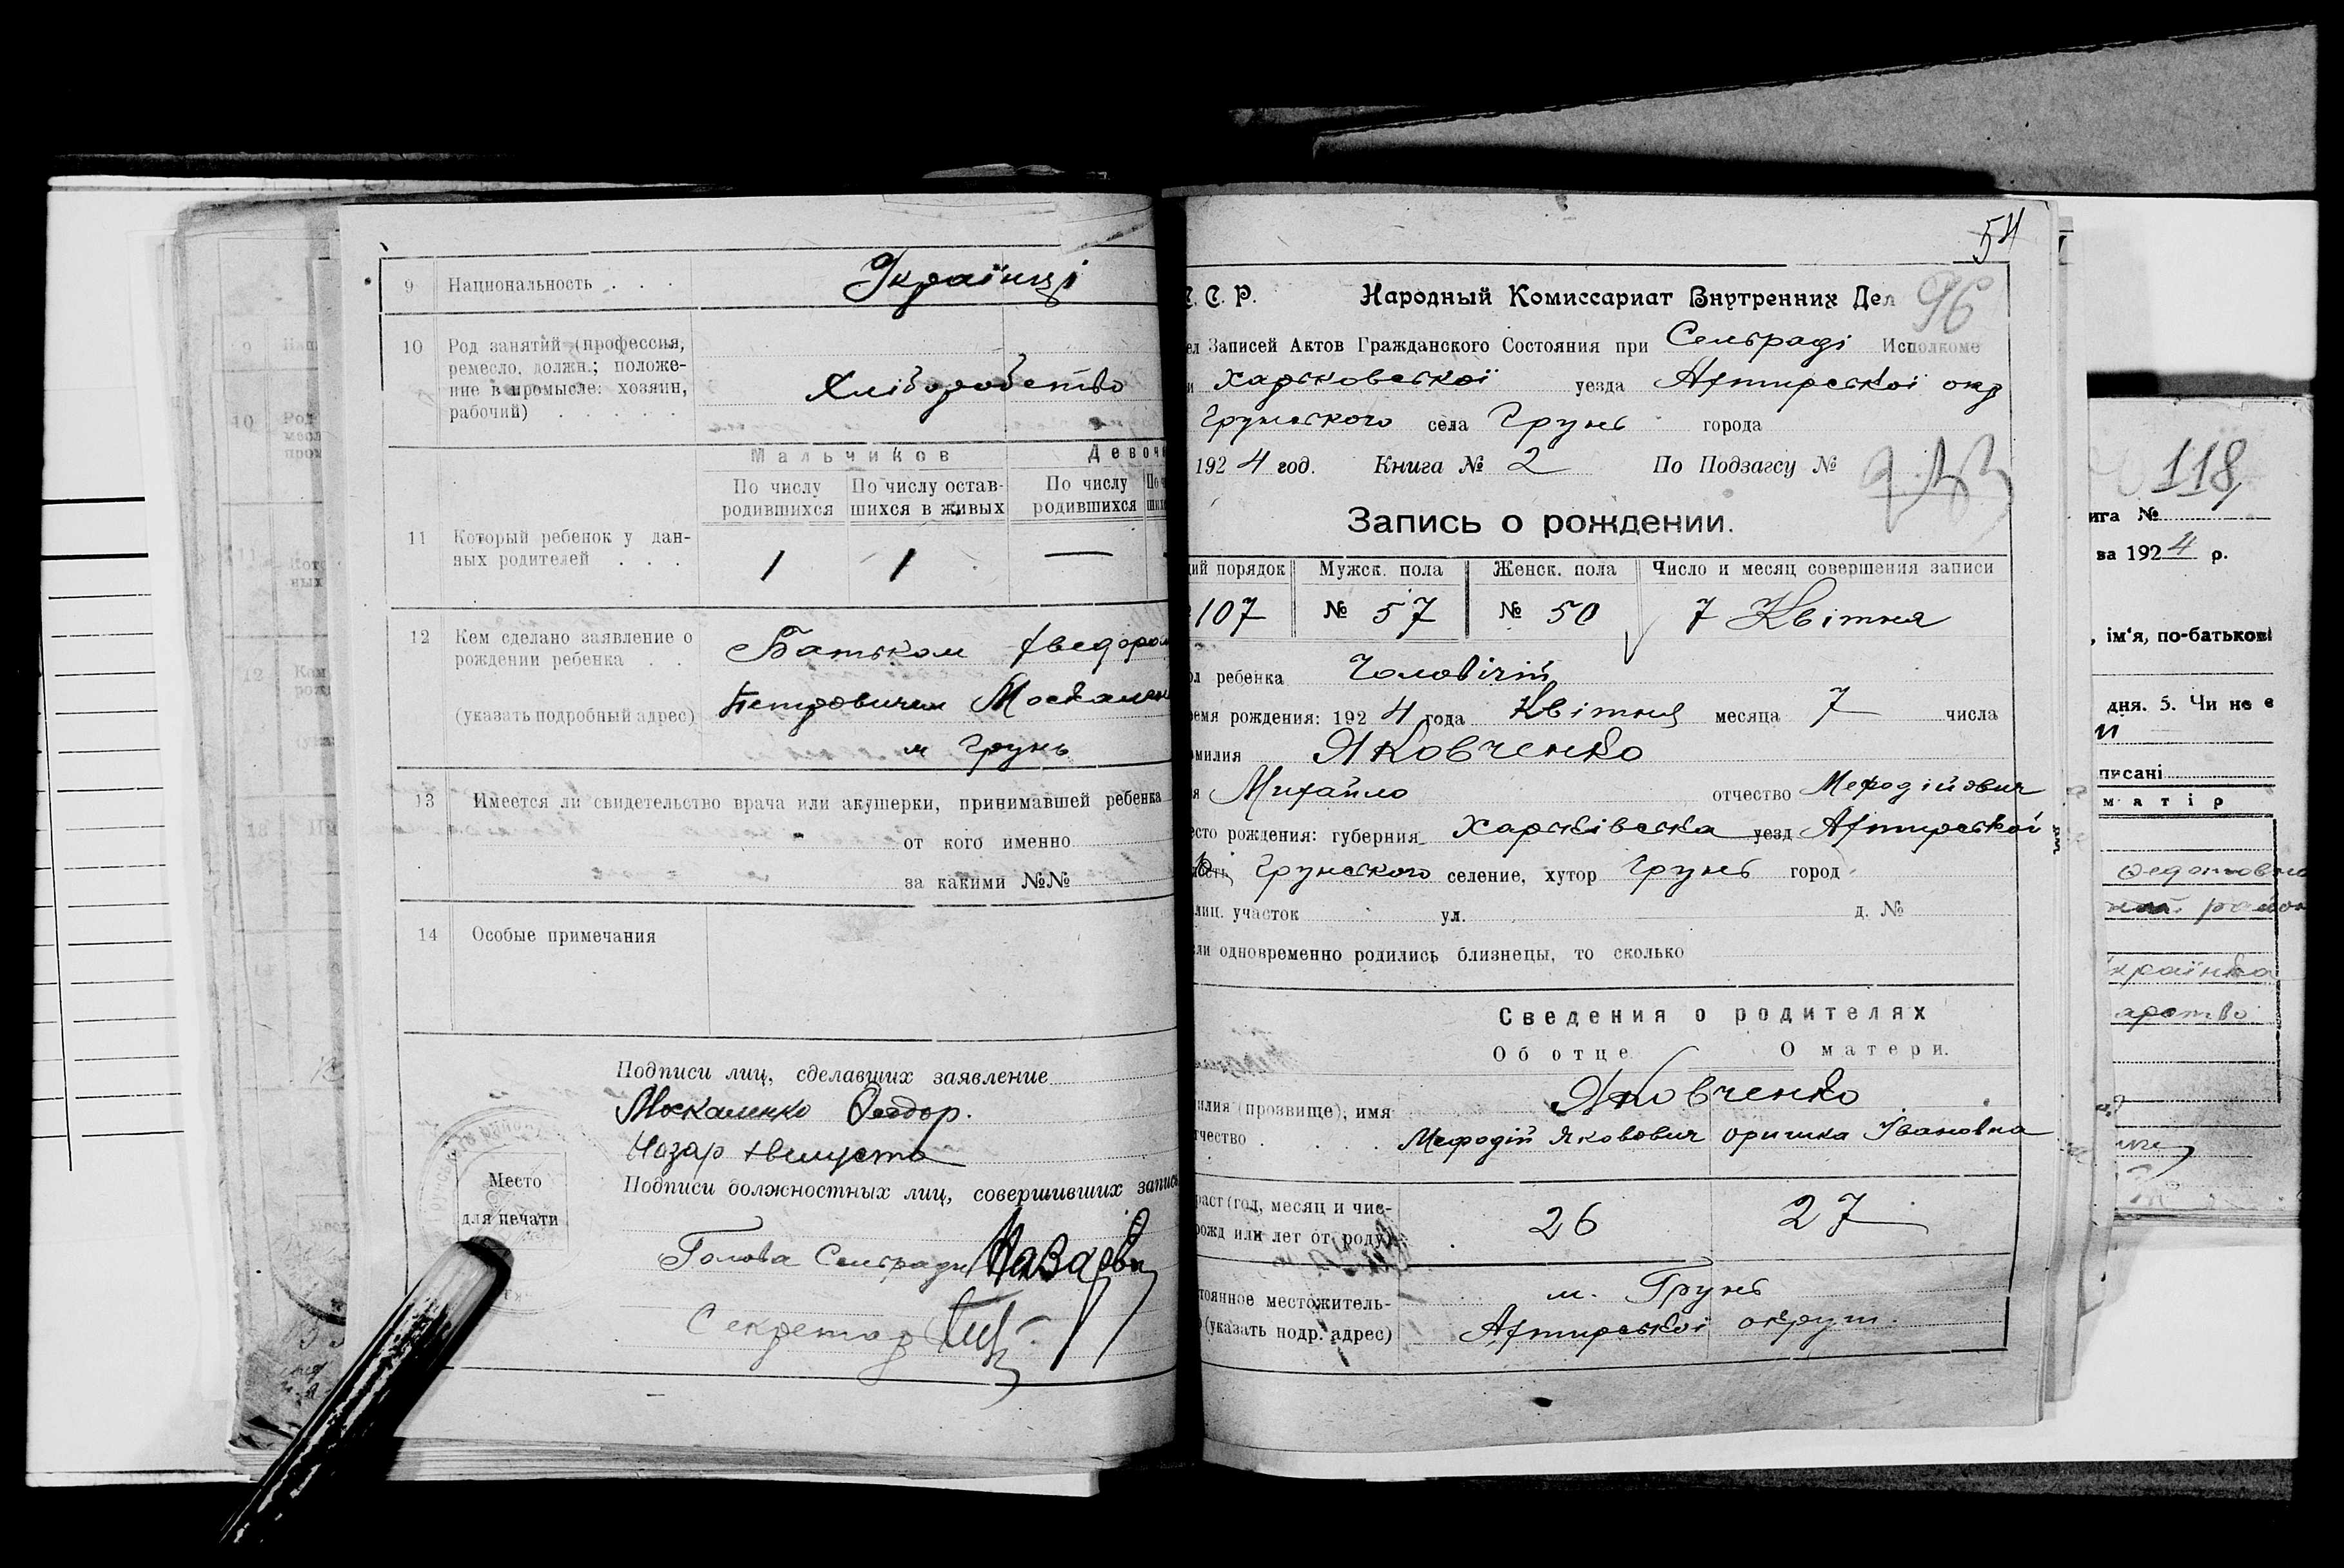 9 Национальность . . . Українці
10 Род занятий (профессия,
ремесло, должн.; положе-
ние в промысле: хозяин,
рабочий) . . . . .
Хліборобство
Мальчиков Девоч
По числу родившихся По числу остав-шихся в живых По числу родившихся
11 Который ребенок у дан-
ных родителей . . .
1 1 —
12 Кем сделано заявление о
рождении ребенка . .
(указать подробный адрес)
Батьком Хведором
Петровичем Москален
м Грунь
13 Имеется ли свидетельство врача или акушерки, принимавшей ребенка
от кого именно
за какими №№
14 Особые примечания
Подписи лиц, сделавших заявление
Москаленко Феодор.
Назар
Подписи должностных лиц, совершивших запись
Место
для печати
Голова Сельради
Секретар
54
С. Р. Народный Комиссариат Внутренних Дел 96
ел Записей Актов Гражданского Состояния при Сельраді Исполкоме
и Харьковської уезда Ахтирської окр
Грунського села Грунь города
1924 год. Книга № 2 По Подзагсу №
Запись о рождении.
щий порядок Мужск. пола Женск. пола Число и месяц совершения записи
107 № 57 № 50 7 Квітня
ол ребенка Чоловічій
ремя рождения: 1924 года Квітня месяца 7 числа
амилия Яковченко
я Михайло отчество Мефодійович
есто рождения: губерния Харьківська уезд Ахтирської
ость Грунського селение, хутор Грунь город
лиц. участок ул. д. №
сли одновременно родились близнецы, то сколько
Сведения о родителях
Об отце О матери.
Яковченко
илия (прозвище), имя
тчество . . . Мефодій Якович Оришка Івановна
раст (год, месяц и чис-
рожд или лет от роду)
26 27
тоянное местожитель-
(указать подр. адрес)
м. Грунь
Ахтирської округи.
118
ига №
за 1924 р.
, ім'я, по-батькові
дня. 5. Чи не є
писані
матір
район
країнка
арство